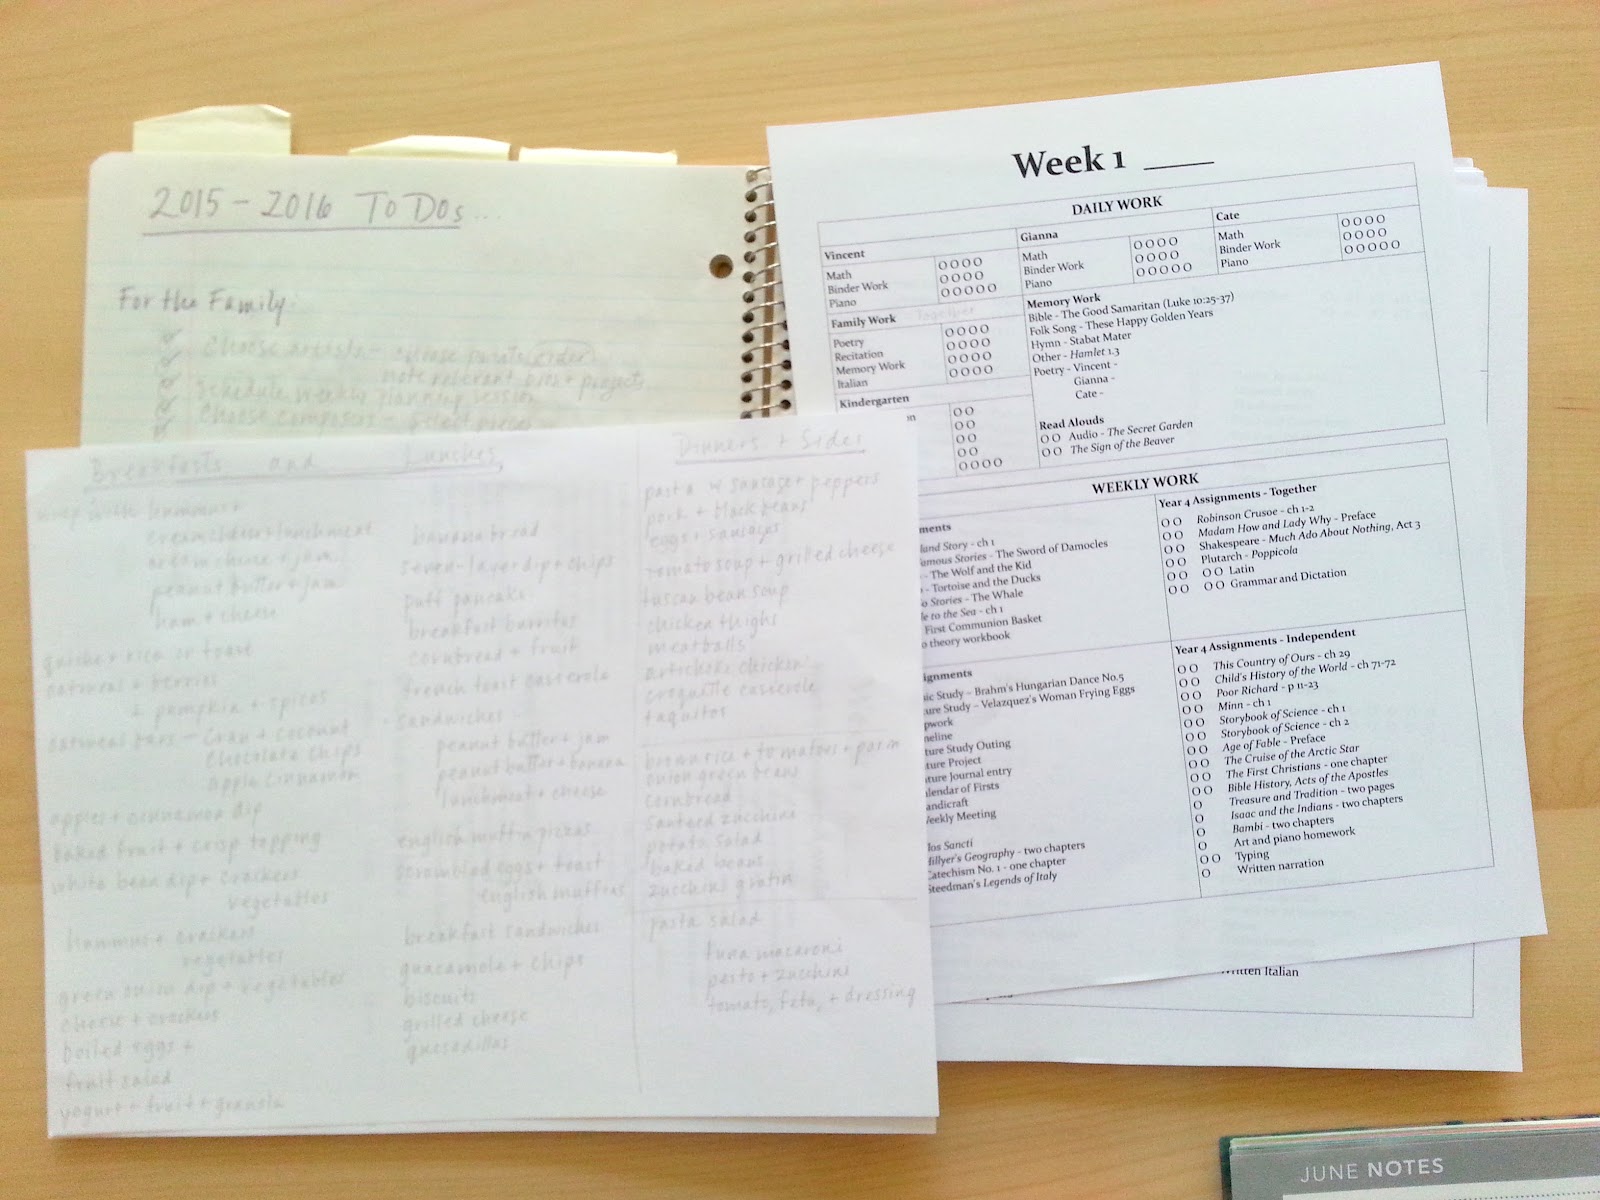 2015 - 2016 To Dos...
For the Family:
Choose artists -
note relevant bios + projects
Schedule weekly planning session
Choose composers - select pieces
Week 1
DAILY WORK
Vincent
Math OOOO
Binder Work OOOO
Piano OOOOO
Gianna
Math OOOO
Binder Work OOOO
Piano OOOOO
Cate
Math OOOO
Binder Work OOOO
Piano OOOOO
Family Work Together
Poetry OOOO
Recitation OOOO
Memory Work OOOO
Italian OOOO
Kindergarten
in OO
OO
OO
OO
OOOO
Memory Work
Bible - The Good Samaritan (Luke 10:25-37)
Folk Song - These Happy Golden Years
Hymn - Stabat Mater
Other - Hamlet 1.3
Poetry - Vincent -
Gianna -
Cate -
Read Alouds
OO Audio - The Secret Garden
OO The Sign of the Beaver
WEEKLY WORK
ments
land Story - ch 1
amous Stories - The Sword of Damocles
- The Wolf and the Kid
- Tortoise and the Ducks
o Stories - The Whale
le to the Sea - ch 1
First Communion Basket
o theory workbook
Year 4 Assignments - Together
OO Robinson Crusoe - ch 1-2
OO Madam How and Lady Why - Preface
OO Shakespeare - Much Ado About Nothing, Act 3
OO Plutarch - Poppicola
OO OO Latin
OO OO Grammar and Dictation
ignments
ic Study – Brahm's Hungarian Dance No.5
ure Study – Velazquez's Woman Frying Eggs
pwork
meline
ture Study Outing
ture Project
ture Journal entry
lendar of Firsts
andicraft
Weekly Meeting
los Sancti
Hillyer's Geography - two chapters
Catechism No. 1 - one chapter
Steedman's Legends of Italy
Year 4 Assignments - Independent
OO This Country of Ours - ch 29
OO Child's History of the World - ch 71-72
OO Poor Richard - p 11-23
OO Minn - ch 1
OO Storybook of Science - ch 1
OO Storybook of Science - ch 2
OO Age of Fable - Preface
OO The Cruise of the Arctic Star
OO The First Christians - one chapter
OO Bible History, Acts of the Apostles
O Treasure and Tradition - two pages
O Isaac and the Indians - two chapters
O Bambi - two chapters
O Art and piano homework
OO Typing
O Written narration
ritten Italian
Breakfasts and Lunches
hummus +
cream cheese + lunchmeat
cream cheese + jam
peanut butter + jam
ham + cheese
quiche + rice or toast
oatmeal + berries
+ pumpkin + spices
oatmeal bars - Cran + coconut
Chocolate chips
Apple Cinnamon
apples + cinnamon dip
baked fruit + crisp topping
white bean dip + crackers
vegetables
hummus + crackers
vegetables
green onion dip + vegetables
cheese + crackers
boiled eggs +
fruit salad
yogurt + fruit + granola
banana bread
seven-layer dip + chips
puff pancake
breakfast burritos
cornbread + fruit
french toast casserole
sandwiches
peanut butter + jam
peanut butter + banana
lunchmeat + cheese
english muffin pizzas
scrambled eggs + toast
english muffins
breakfast sandwiches
guacamole + chips
biscuits
grilled cheese
quesadillas
Dinners + Sides
pasta w sausage + peppers
pork + black beans
eggs + sausages
tomato soup + grilled cheese
tuscan bean soup
chicken thighs
meatballs
artichoke chicken
croquette casserole
taquitos
brown rice + tomatoes + parm
onion green beans
cornbread
sauteed zucchini
potato salad
baked beans
zucchini gratin
pasta salad
tuna macaroni
pesto + zucchini
tomato, feta, + dressing
JUNE NOTES